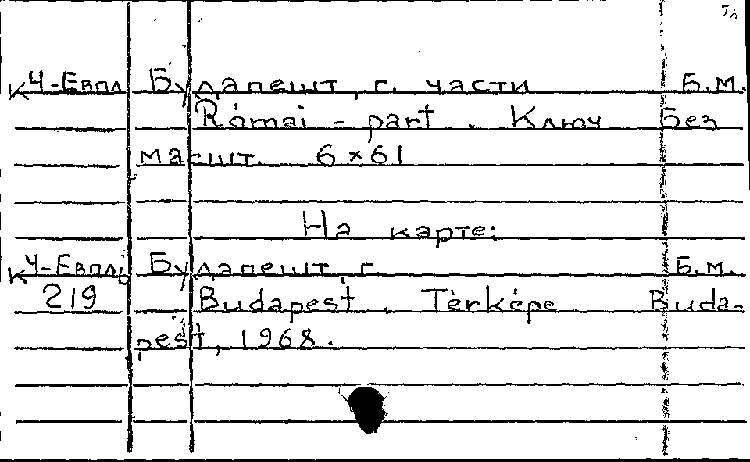 К Ч-Евпл Будапешт, г. части Б.М.
Római-part. Ключ Без
масшт. 6×61
На карте:
К Ч-Евпль Будапешт, г. Б.М.
219 Budapest. Térképe Buda-
pest, 1968.